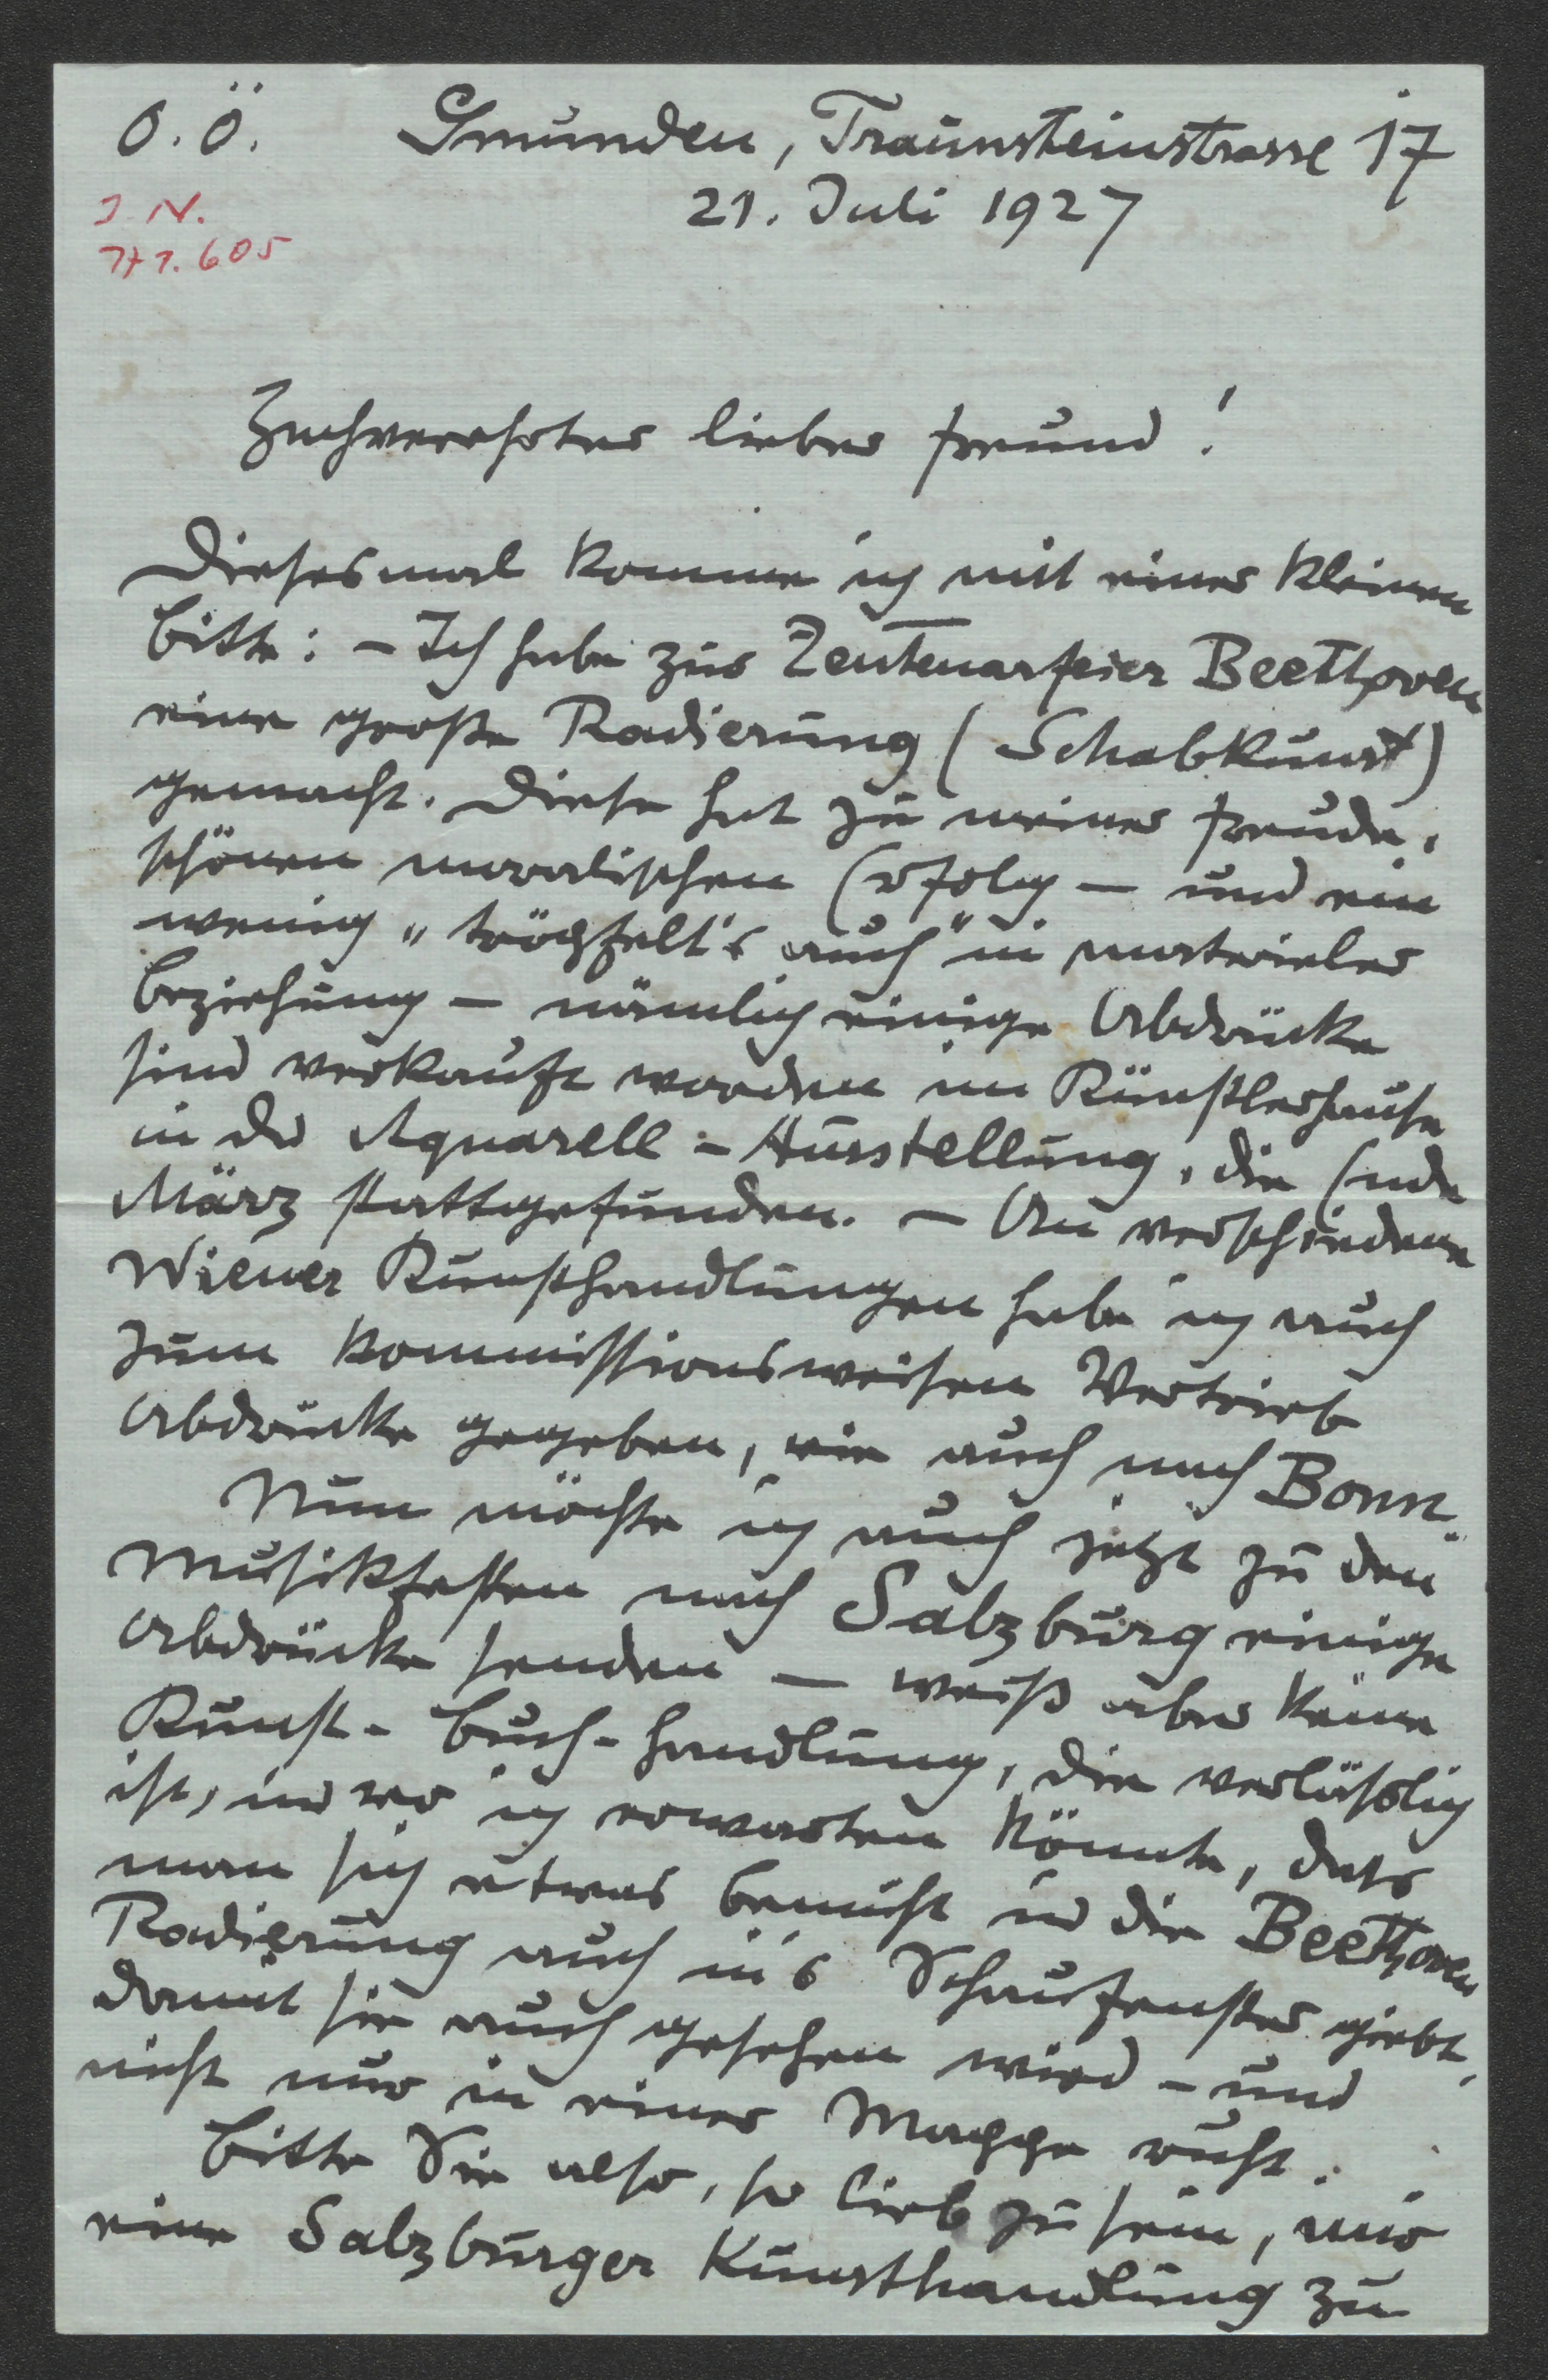 O.Ö. Gmunden, Traunsteinstrasse 17
21. Juli 1927
I. N.
171.605
Hochverehrter lieber Freund!
Diesesmal komme ich mit einer kleinen
Bitte: – Ich habe zur Zentenarfeier Beethoven
eine große Radierung (Schabkunst)
gemacht. Diese hat zu meiner Freude,
schönen moralischen Erfolg – und ein
wenig „tröpfelt's auch" in materieler
Beziehung – nämlich einige Abdrücke
sind verkauft worden im Künstlerhause
in der Aquarell-Ausstellung, die Ende
März stattgefunden. – An verschiedene
Wiener Kunsthandlungen habe ich auch
zum kommissionsweisen Vertrieb
Abdrücke gegeben, wie auch nach Bonn.
Nun möchte ich auch jetzt zu den
Musikfesten nach Salzburg einige
Abdrücke senden – weiß aber keine
Kunst-Buch-handlung, die verläßlich
ist, und wo ich erwarten könnte, dass
man sich etwas bemüht und die Beethoven
Radierung auch in's Schaufenster giebt,
damit sie auch gesehen wird – und
nicht nur in einer Mappe ruht.
Bitte Sie also, so lieb zu sein, mir
eine Salzburger Kunsthandlung zu